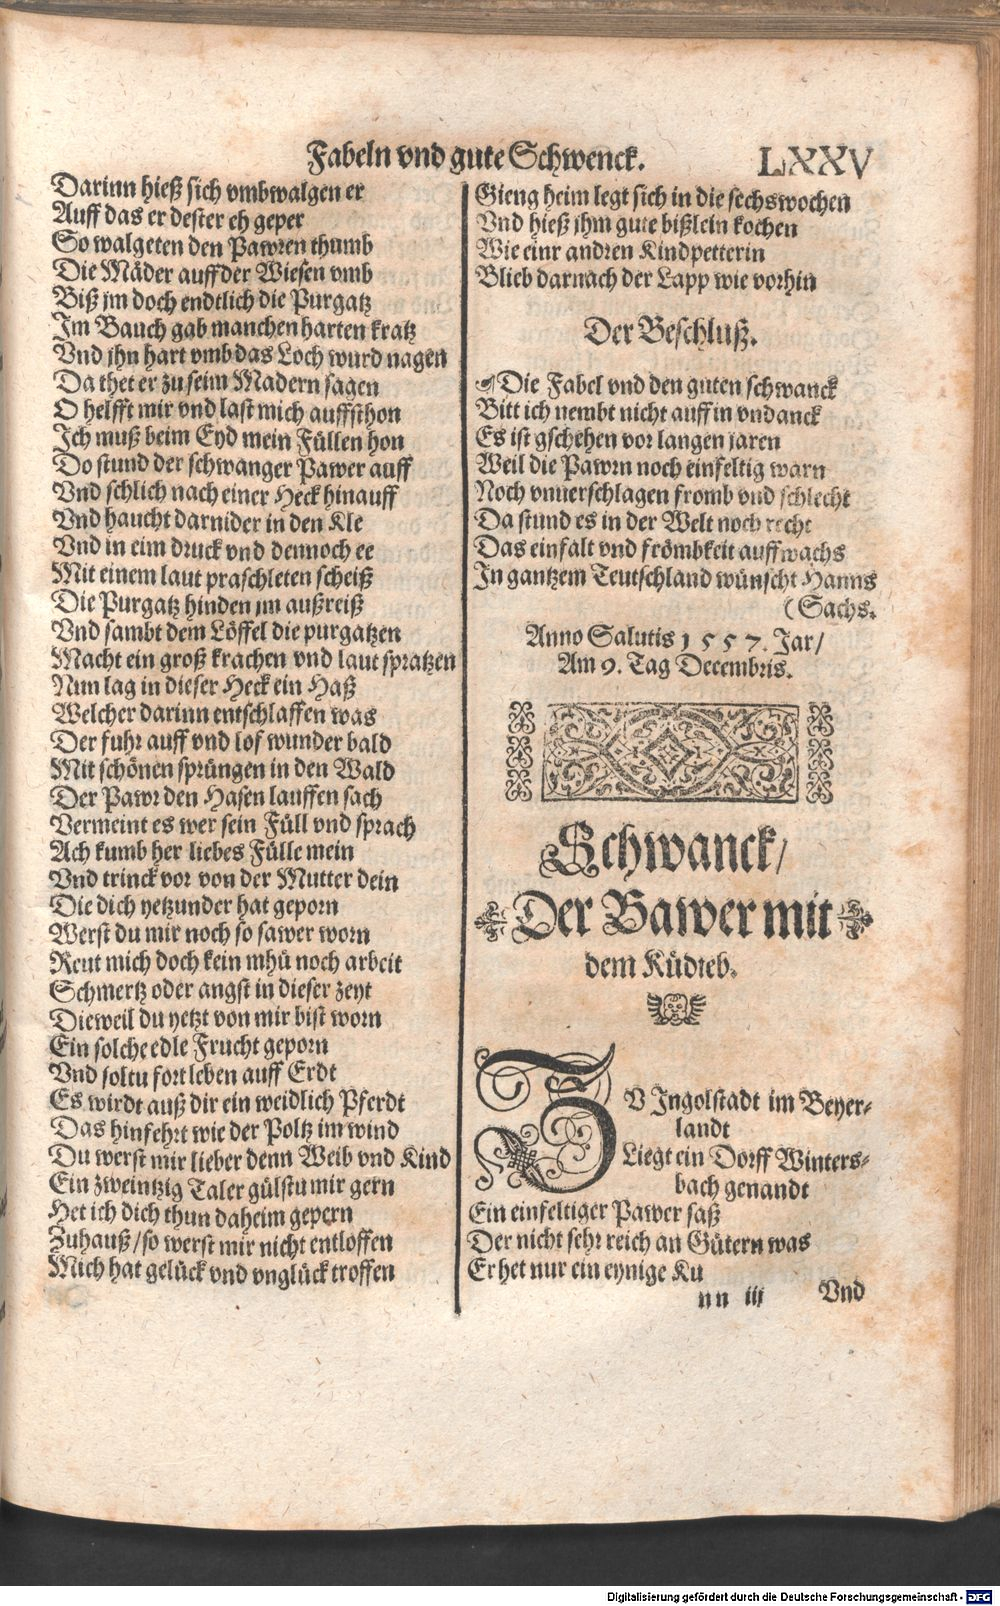 Fabeln vnd gute Schwenck. LXXV
Darinn hieß sich vmbwalgen er
Auff das er dester eh geper
So walgeten den Pawren thumb
Die Mäder auff der Wiesen vmb
Biß jm doch endtlich die Purgatz
Im Bauch gab manchen harten kratz
Vnd jhn hart vmb das Loch wurd nagen
Da thet er zu seim Madern sagen
O helfft mir vnd last mich auffsthon
Ich muß beim Eyd mein Füllen hon
Do stund der schwanger Pawer auff
Vnd schlich nach einer Heck hinauff
Vnd haucht darnider in den Kle
Vnd in eim druck vnd dennoch ee
Mit einem laut praschleten scheiß
Die Purgatz hinden jm außreiß
Vnd sambt dem Löffel die purgatzen
Macht ein groß krachen vnd laut spratzen
Nun lag in dieser Heck ein Haß
Welcher darinn entschlaffen was
Der fuhr auff vnd lof wunder bald
Mit schönen sprüngen in den Wald
Der Pawr den Hasen lauffen sach
Vermeint es wer sein Füll vnd sprach
Ach kumb her liebes Fülle mein
Vnd trinck vor von der Mutter dein
Die dich yetzunder hat geporn
Werst du mir noch so sawer worn
Reut mich doch kein mhü noch arbeit
Schmertz oder angst in dieser zeyt
Dieweil du yetzt von mir bist worn
Ein solche edle Frucht geporn
Vnd soltu fort leben auff Erdt
Es wirdt auß dir ein weidlich Pferdt
Das hinfehrt wie der Poltz im wind
Du werst mir lieber denn Weib vnd Kind
Ein zweintzig Taler gülstu mir gern
Het ich dich thun daheim gepern
Zuhauß/so werst mir nicht entloffen
Mich hat gelück vnd vnglück troffen
Gieng heim legt sich in die sechswochen
Vnd hieß jhm gute bißlein kochen
Wie einr andren Kindpetterin
Blieb darnach der Lapp wie vorhin
Der Beschluß.
Die Fabel vnd den guten schwanck
Bitt ich nembt nicht auff in vndanck
Es ist gschehen vor langen jaren
Weil die Pawrn noch einfeltig warn
Noch vnuerschlagen fromb vnd schlecht
Da stund es in der Welt noch recht
Das einfalt vnd frömbkeit auffwachs
In gantzem Teutschland wünscht Hanns
(Sachs.
Anno Salutis 1557. Jar/
Am 9. Tag Decembris.
Schwanck/
Der Bawer mit
dem Küdieb.
ZV Ingolstadt im Beyer-
landt
Liegt ein Dorff Winters-
bach genandt
Ein einfeltiger Pawer saß
Der nicht sehr reich an Gütern was
Er het nur ein eynige Ku
nn iii Vnd
Digitalisierung gefördert durch die Deutsche Forschungsgemeinschaft - DFG